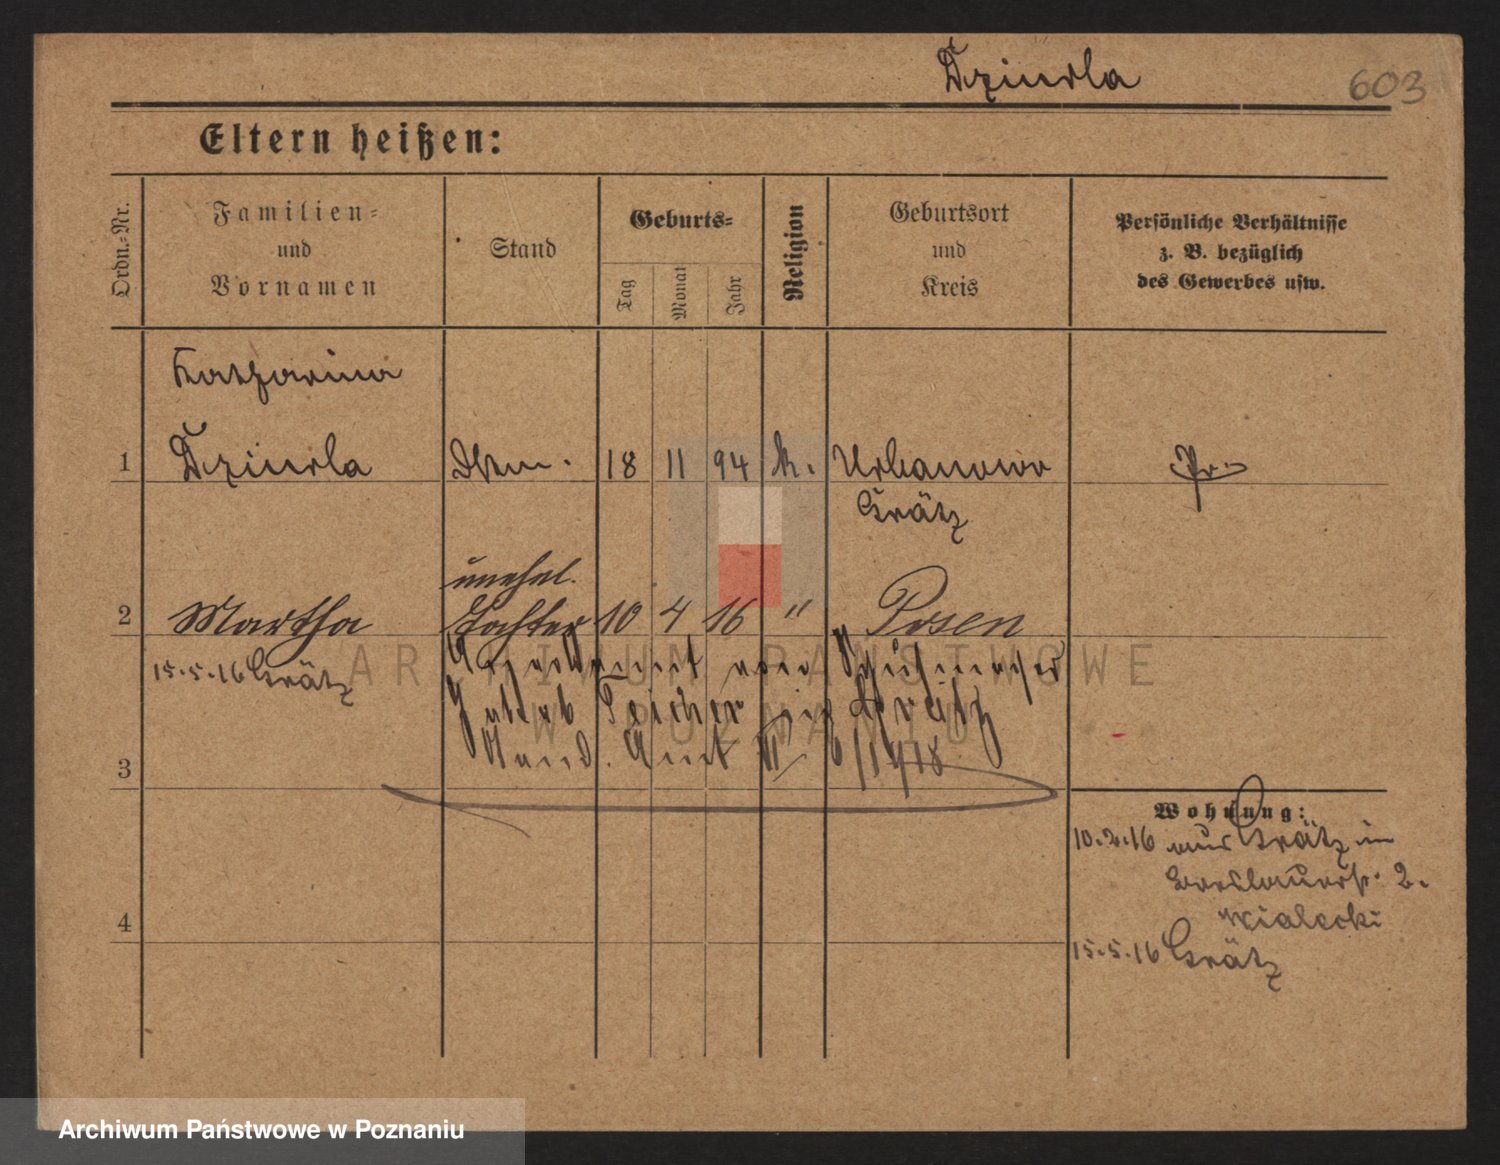 Dziurla
603
Eltern heißen:
Ordn.-Nr.
Familien-
und
Vornamen
Stand
Geburts-
Tag
Monat
Jahr
Religion
Geburtsort
und
Kreis
Persönliche Verhältnisse
z. B. bezüglich
des Gewerbes usw.
Katharina
1 Dziurla 18 11 94 k. Urbanowo Pr.
Grätz
unehel.
2 Martha Tochter 10 4 16 " Posen
15.5.16 Grätz
vom
Grätz
3 Amt
Wohnung:
10.2.16 aus Grätz in
Breslauerstr. 2.
Wialecki
4
15.5.16 Grätz
ARCHIWUM PAŃSTWOWE
W POZNANIU
Archiwum Państwowe w Poznaniu